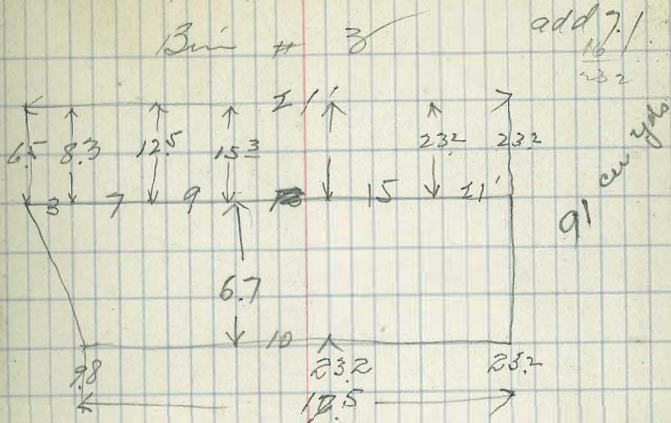 Bin # 3
add 7.1
16
23 2
21'
6.5 8.3 12.5 15.3 23.2 23.2
3 7 9 15 21'
91 cu yds
6.7
10
9.8 23.2 23.2